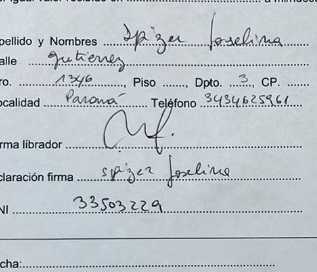 pellido y Nombres Spizer Joselina
alle Gutierrez
ro. 1346, Piso ......, Dpto. 3, CP. ......
ocalidad Paraná Teléfono 3434625961
rma librador
claración firma Spizer Joselina
NI 33503229
cha: